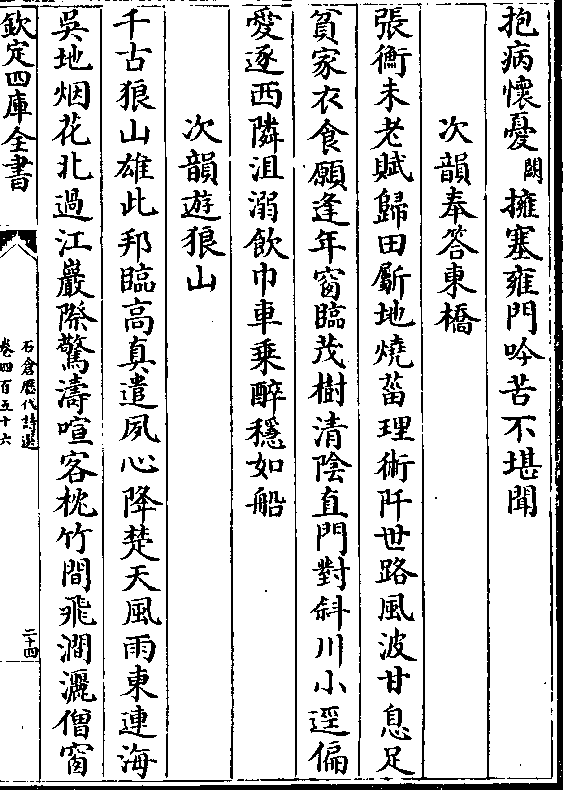 抱病懷憂闕擁塞雍門吟苦不堪聞
次韻奉答東橋
張衡未老賦歸田斸地燒菑理術阡世路風波甘息足
貧家衣食願逢年窗臨茂樹清陰直門對斜川小逕偏
愛逐西隣沮溺飲巾車乘醉穩如船
次韻遊狼山
千古狼山雄此邦臨高真遣夙心降楚天風雨東連海
吳地烟花北過江巖際驚濤喧客枕竹間飛澗灑僧窗
欽定四庫全書
石倉歷代詩選
卷四百五十六
二十四